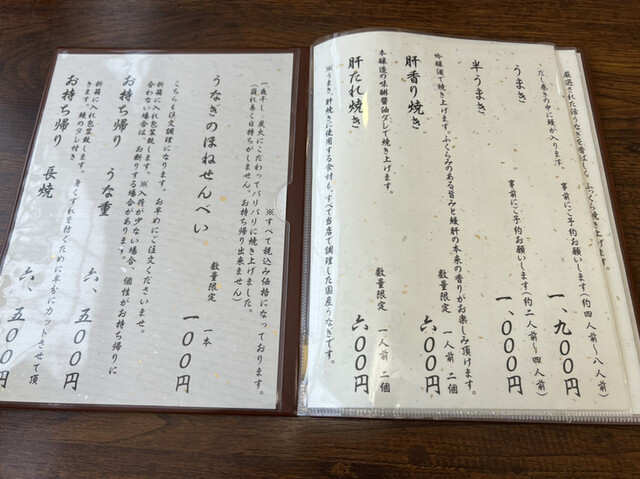 厳選された活うなぎを香ばしく、ふっくら焼き上げます。
うまき
事前にご予約お願いします(約四人前~八人前)
一、九〇〇円
だし巻きの中に鰻が入ります。
半うまき
事前にご予約お願いします(約二人前~四人前)
一、〇〇〇円
肝香り焼き
数量限定 一人前 二個
六〇〇円
吟醸酒で焼き上げます。ふくらみのある旨みと鰻肝の本来の香りがお楽しみ頂けます。
肝たれ焼き
数量限定 一人前 二個
六〇〇円
本醸造の味醂醤油ダレで焼き上げます。
※うまき、肝焼きに使用する食材も、すべて当店で調理した国産うなぎです。
※すべて税込み価格になっております。
うなぎのほねせんべい
数量限定 一本
一〇〇円
一夜干し、炭火にこだわってパリパリに焼き上げました。
(蒲れもく日持ちがしません。お持ち帰り出来ません)
お持ち帰り うな重
六、五〇〇円
こちらも注文調理になります。お早めにご注文くださいませ。
折箱に入れ包装致します。※入荷が少ない場合、個性がお持ち帰りに
合わない場合は、お断りする場合があります。
お持ち帰り 長焼
六、五〇〇円
折箱に入れ包装致します。身くずれを防ぐために半分にカットさせて頂
きます。鰻のタレ付き